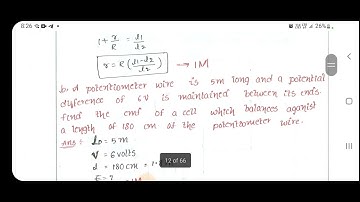 8:26
26%
1 + r/R = l1/l2
r = R (l1-l2/l2) → 1M
b. A potentiometer wire is 5m long and a potential
difference of 6V is maintained between its ends.
find the emf of a cell which balances aganist
a length of 180 cm of the potentiometer wire.
Ans: L0 = 5m
V = 6 volts
l = 180 cm = 1.8
12 of 66
E = ?